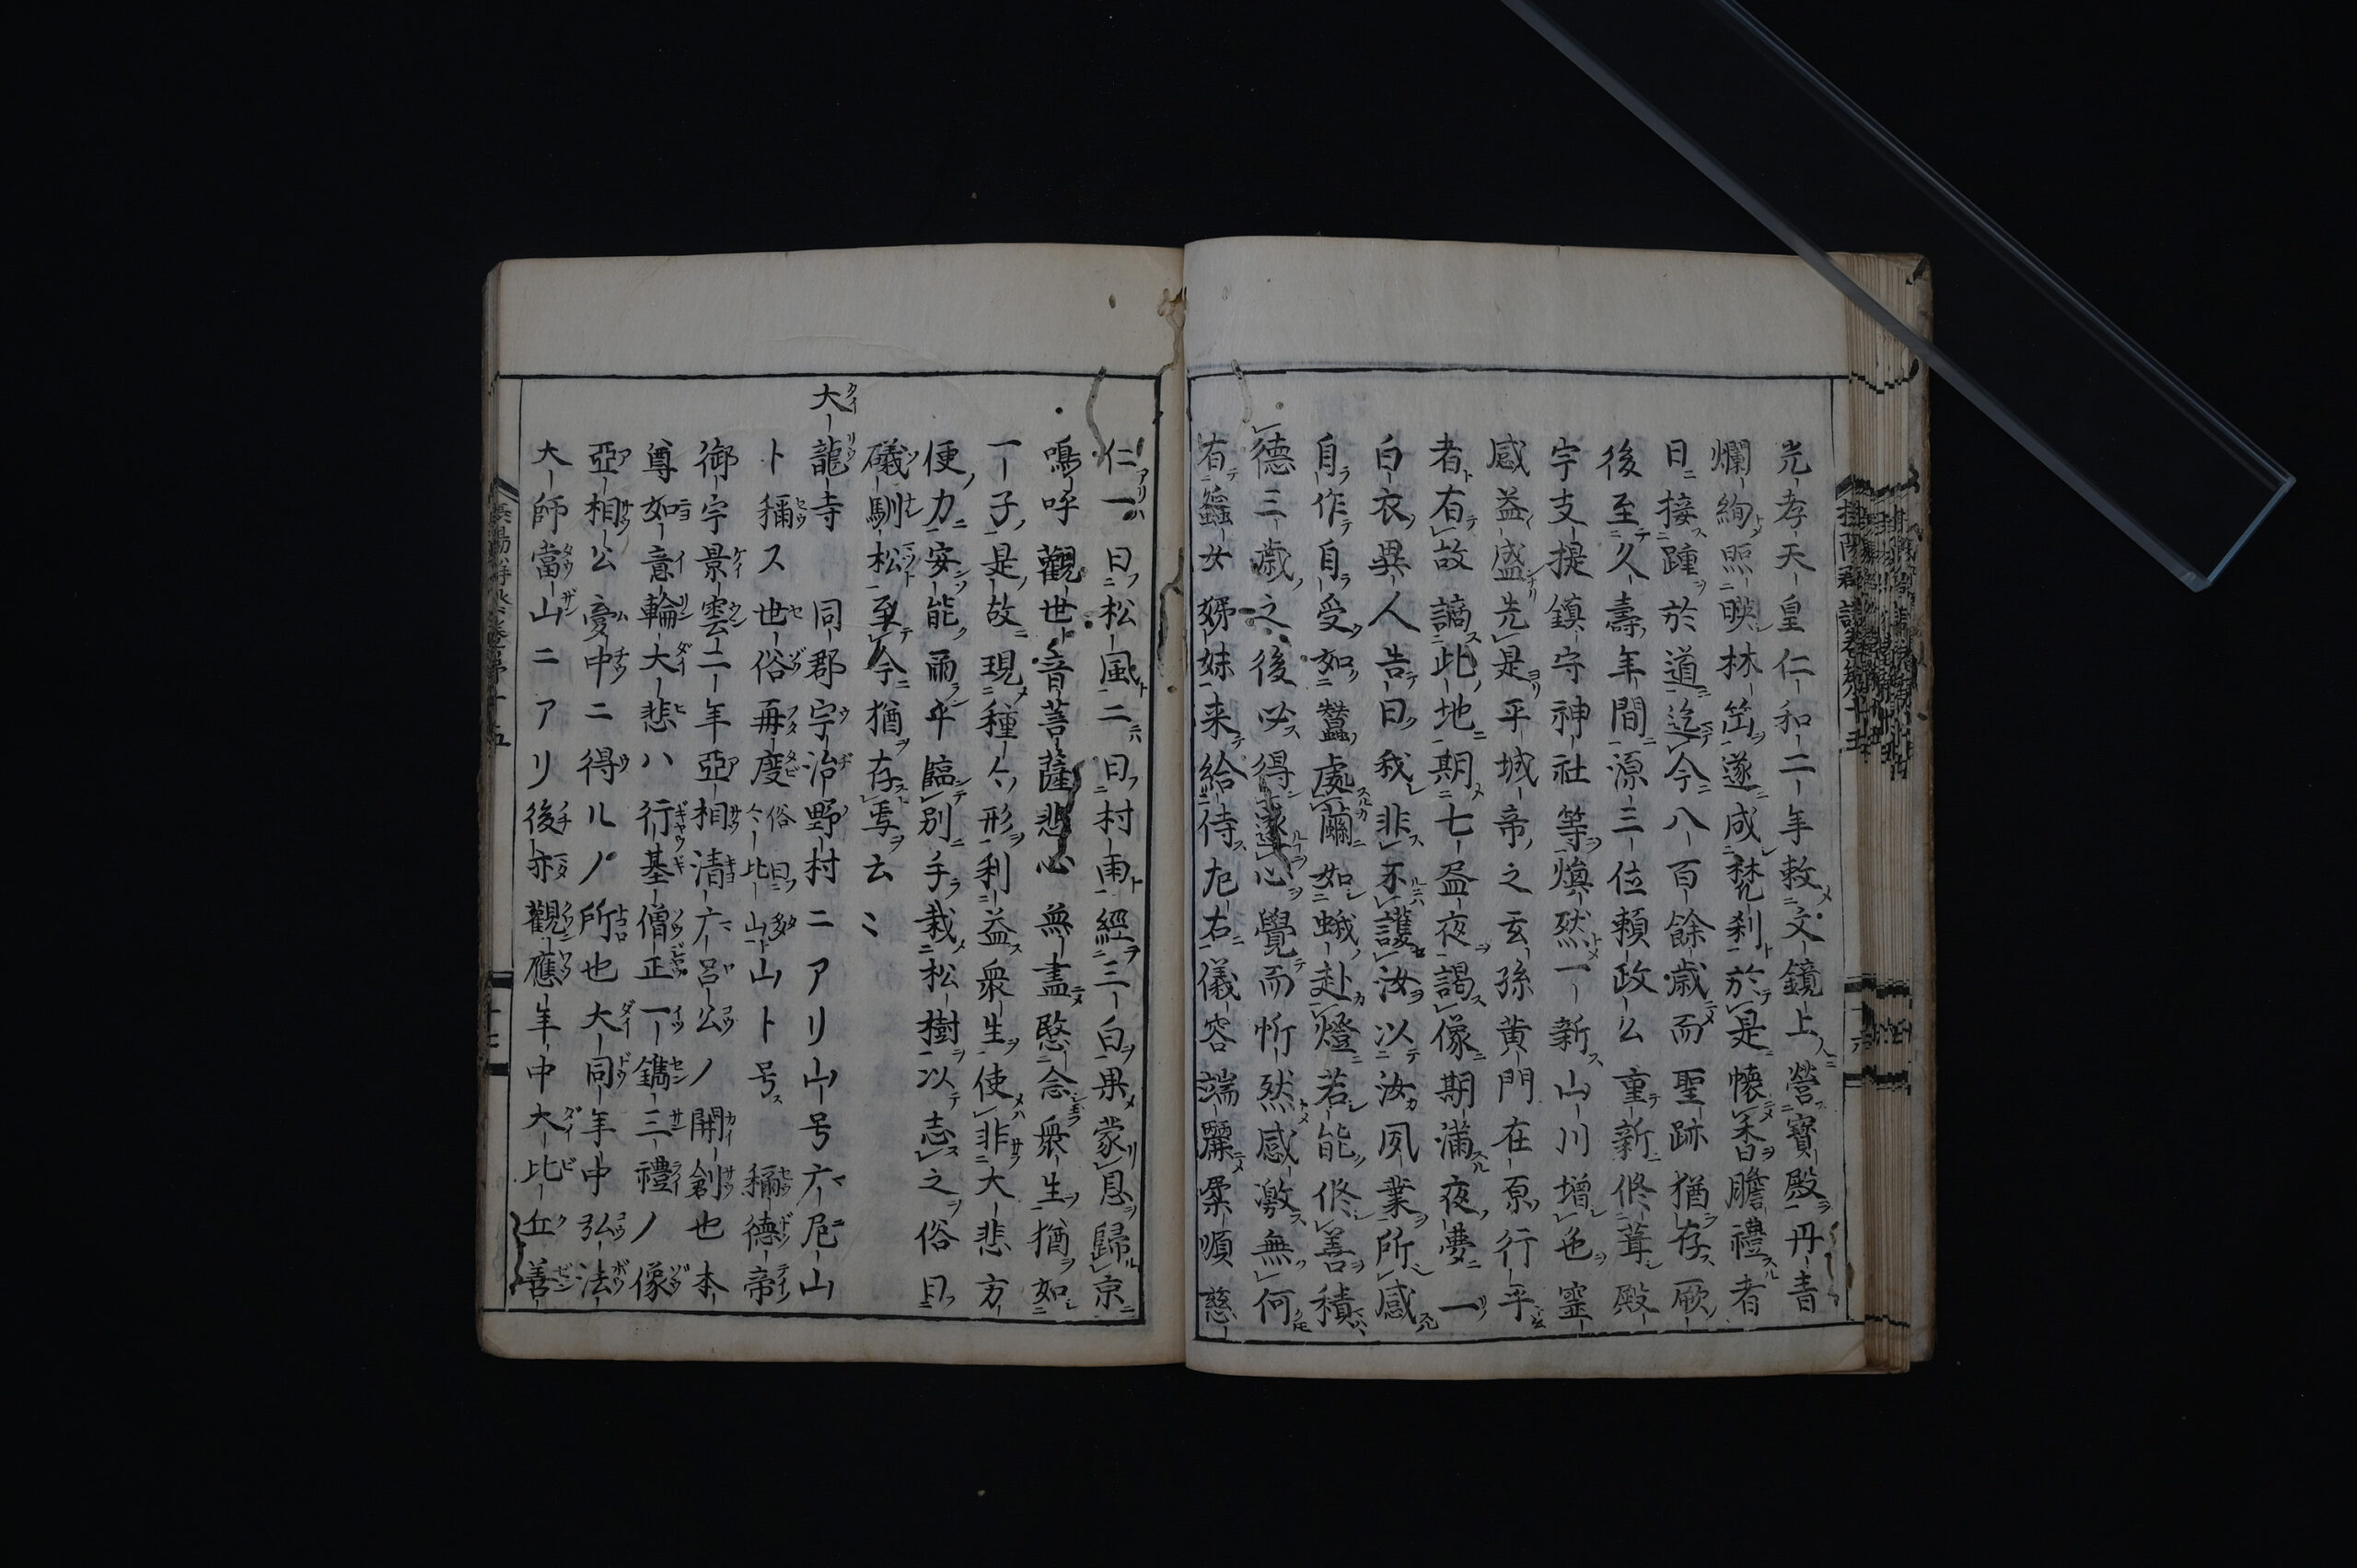 光孝天皇仁和二年敕文鏡上人營寶殿丹青
爛絢照映林岱遂成梵刹於是懐香瞻禮者
日接踵於道迄今八百餘歳而聖跡猶存厥
後至久壽年間源三位頼政公重新修葺殿
宇支提鎮守神社等煥然一新山川增色霊
感益盛先是平城帝之玄孫黄門在原行平
者有故謫此地期七盈夜謁像期滿夜夢一
白衣異人告曰我非不護汝以汝夙業所感
自作自受如蠶處繭如蛾赴燈若能修善積
德三歳之後必得遂心覺而忻然感激無何
有蜑女姊妹来給侍左右儀容端麗柔順慈
仁一曰松風二曰村雨經三白果蒙恩歸京
嗚呼觀世音菩薩悲心無盡愍念衆生猶如
一子是故現種々形利益衆生使非大悲方
便力安能爾乎臨別手栽松樹以志之俗曰
礒馴松至今猶存焉云〻
大龍寺 同郡宇治野村ニアリ山号广尼山
ト稱ス世俗再度俗曰多々比山山ト号 稱德帝
御宇景雲二年亞相清广呂公ノ開創也本
尊如意輪大悲ハ行基僧正一鐫三禮ノ像
亞相公夢中ニ得ルノ所也大同年中弘法
大師當山ニアリ後亦觀應年中大比丘善